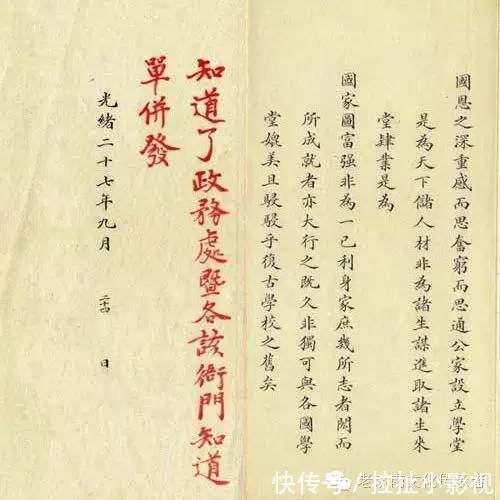 國恩之深重感而思奮窮而思通公家設立學堂
是為天下儲人材非為諸生謀進取諸生來
堂肄業是為
國家圖富强非為一己利身家庶幾所志者閎而
所成就者亦大行之既久非獨可與各國學
堂媲美且駸駸乎復古學校之舊矣
知道了政務處暨各該衙門知道
單併發
光緒二十七年九月 二十四 日
快传号/拉扯小影视